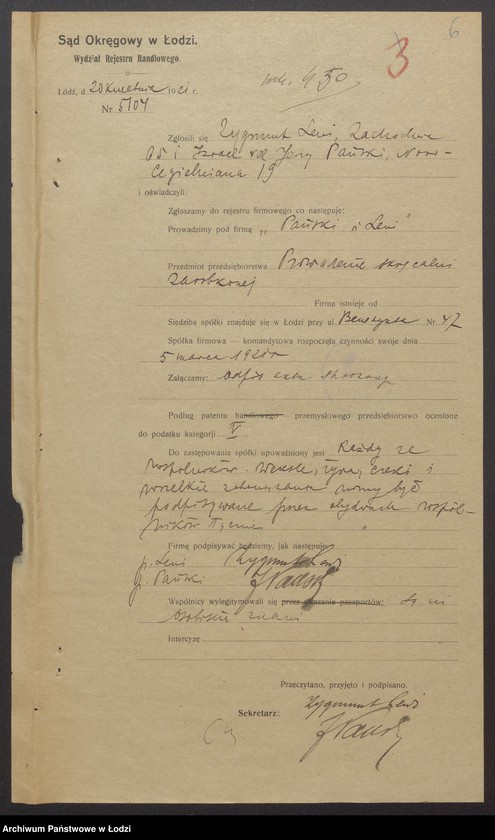 6
3
Sąd Okręgowy w Łodzi.
Wydział Rejestru Handlowego.
Łódź, d. 20 Kwietnia 1921 r.
Nr. 5104
450
Zgłosili się Zygmunt Lewi, Zachodnia
i Izrael vel Jerzy Pański, Nowo-
Cegielniana 19
i oświadczyli:
Zgłaszamy do rejestru firmowego co następuje:
Prowadzimy pod firmą „Pański i Lewi"
Przedmiot przedsiębiorstwa Prowadzenie skręcalni
zarobkowej
Firma istnieje od
Siedziba spółki znajduje się w Łodzi przy ul. Benedykta Nr. 47
Spółka firmowa — komandytowa rozpoczęła czynności swoje dnia
5 marca 1921 r
Załączamy: odpis
Podług patentu handlowego — przemysłowego przedsiębiorstwo ocenione
do podatku kategorji V
Do zastępowania spółki upoważniony jest Każdy ze
wspólników. Weksle, żyra, czeki i
wszelkie zobowiązania winny być
podpisywane przez obydwóch wspól-
ników łącznie
Firmę podpisywać będziemy, jak następuje:
p. Lewi Zygmunt Lewi
p. Pański J Pański
Wspólnicy wylegitymowali się przez okazanie paszportów: są mi
osobiście znani
Intercyzę
Przeczytano, przyjęto i podpisano.
Zygmunt Lewi
Sekretarz:
J Pański
Archiwum Państwowe w Łodzi